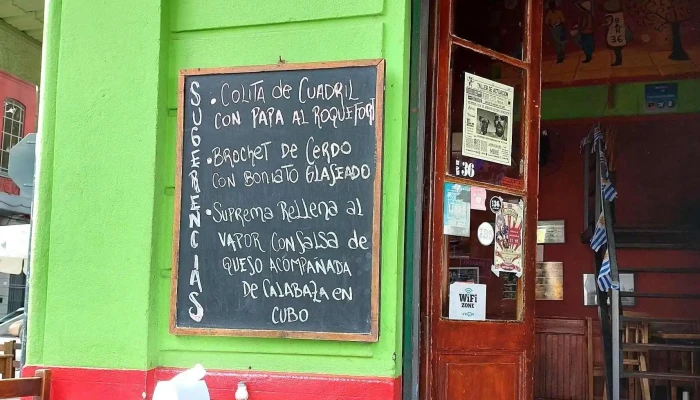 SUGERENCIAS
• COLITA DE CUADRIL
CON PAPA AL ROQUEFORT
• BROCHET DE CERDO
CON BONIATO GLASEADO
• SUPREMA RELLENA AL
VAPOR CON SALSA DE
QUESO ACOMPAÑADA
DE CALABAZA EN
CUBO
TALLER DE ACTUACION
36
WiFi
ZONE